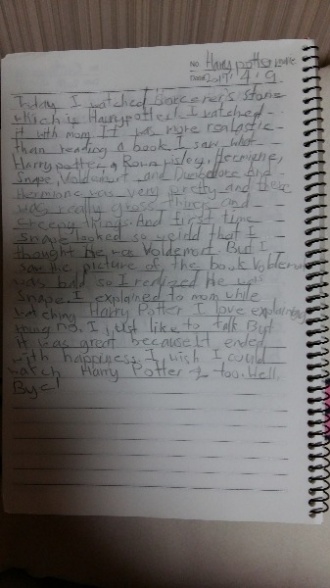 No. Harry potter movie
Date 2017. 4. 9.
Today I watched Sorcerer's Stone
which is Harry potter 1. I watched
it with mom. It was more rentastic
than reading a book. I saw what
Harry potter, Ron Weisley, Hermione,
Snape, Voldemort, and
Hermione was very pretty and there
was really gross things and
creepy things. And first time
snape looked so weird that I
thought he was Voldemort. But I
saw the picture of the book Voldemort
was bad so I realized he was
Snape. I explained to mom while
watching Harry Potter. I love explaining
no, I just like to talk. But
it was great because it ended
with happiness. I wish I could
watch Harry Potter 2 too. Well.
Bye!